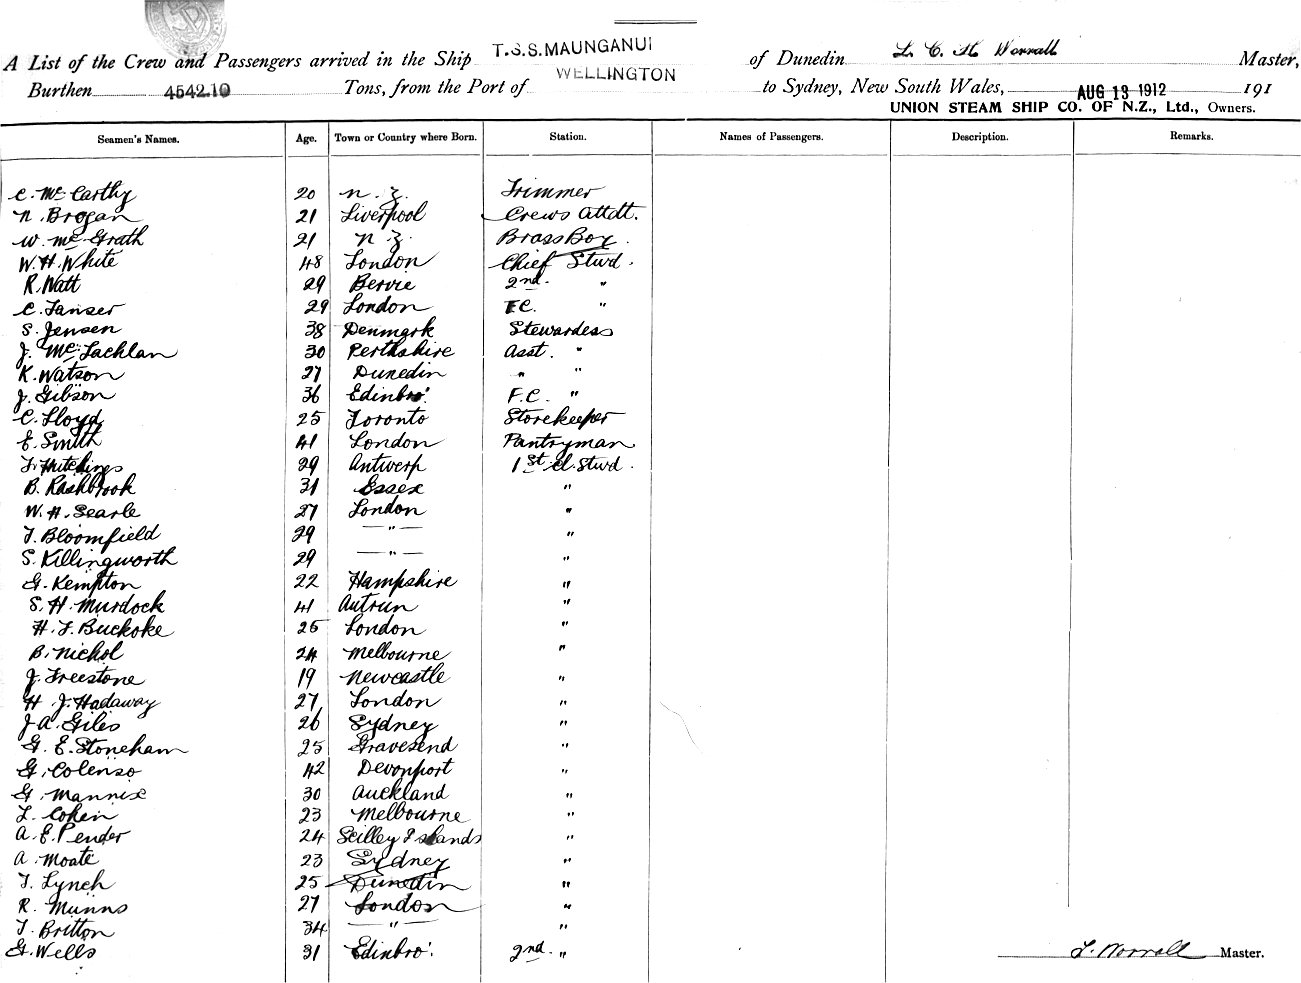 A List of the Crew and Passengers arrived in the Ship T.S.S. MAUNGANUI of Dunedin L. C. H Worrall Master,
Burthen 4542.10 Tons, from the Port of WELLINGTON to Sydney, New South Wales, AUG 13 1912 191
UNION STEAM SHIP CO. OF N.Z., Ltd., Owners.
Seamen's Names. Age. Town or Country where Born. Station. Names of Passengers. Description. Remarks.
C. McCarthy 20 N. Z. Trimmer
N. Brogan 21 Liverpool Crews Attdt.
W. McGrath 21 N Z. Brass Boy.
W. H. White 48 London Chief Stwd.
R. Watt 29 Bervie 2nd. "
C. Tanser 29 London F.C. "
S. Jensen 38 Denmark Stewardess
J. McLachlan 30 Perthshire Asst. "
K. Watson 27 Dunedin " "
J. Gibson 36 Edinbro'. F.C. "
C. Lloyd 25 Toronto Storekeeper
E. Smith 41 London Pantryman
F. Hutchings 29 Antwerp 1st Cl. Stwd.
B. Rashbrook 31 Essex "
W. H. Searle 27 London "
T. Bloomfield 29 — " — "
S. Killingworth 29 — " — "
G. Kempton 22 Hampshire "
S. H. Murdock 41 "
H. F. Buckoke 25 London "
B. Nichol 24 Melbourne "
J. Freestone 19 Newcastle "
H. J. Hadaway 27 London "
J A. Giles 26 Sydney "
G. E. Stoneham 25 Gravesend "
G. Colenso 42 Devonport "
G. Mannix 30 Auckland "
L. Cohen 23 Melbourne "
A. E. Pender 24 Scilley Islands "
A. Moate 23 Sydney "
T. Lynch 25 Dunedin "
R. Munns 27 London "
T. Britton 34 — " — "
G. Wells 31 Edinbro'. 2nd. "
L. Worrall Master.